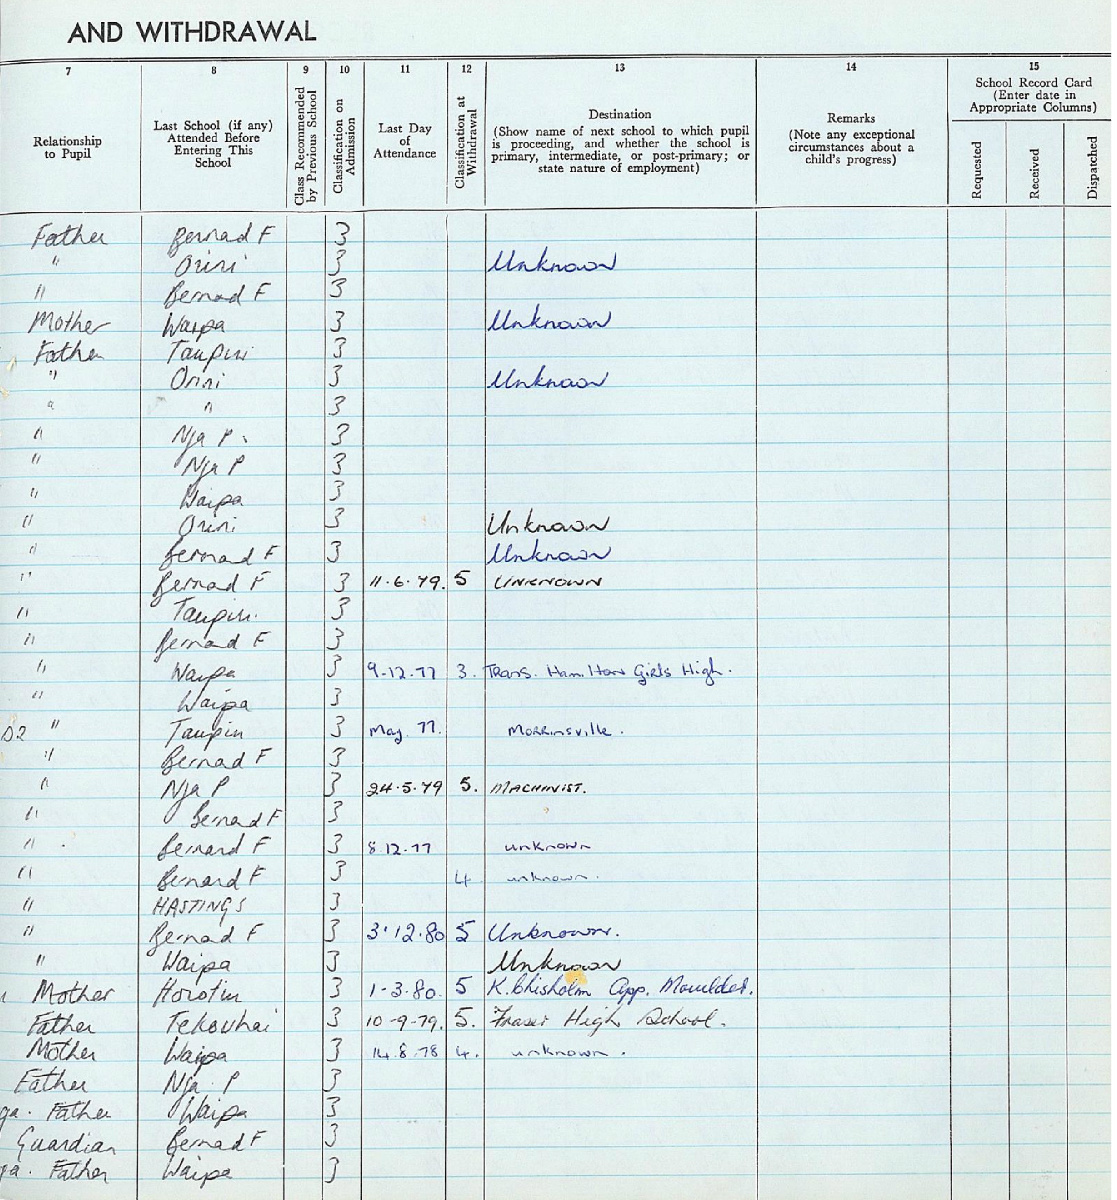 AND WITHDRAWAL
7 8 9 10 11 12 13 14 15
Relationship to Pupil
Last School (if any) Attended Before Entering This School
Class Recommended by Previous School
Classification on Admission
Last Day of Attendance
Classification at Withdrawal
Destination
(Show name of next school to which pupil is proceeding, and whether the school is primary, intermediate, or post-primary; or state nature of employment)
Remarks
(Note any exceptional circumstances about a child's progress)
School Record Card
(Enter date in Appropriate Columns)
Requested
Received
Dispatched
Father Bernad F 3
" Orini 3 Unknown
" Bernad F 3
Mother Waipa 3 Unknown
Father Taupiri 3
" Orini 3 Unknown
" " 3
" Nga P. 3
" Nga P 3
" Waipa 3
" Orini 3 Unknown
" Bernad F 3 Unknown
" Bernad F 3 11.6.79. 5 UNKNOWN
" Taupiri. 3
" Bernad F 3
" Waipa 3 9-12.77 3. Trans. Hamilton Girls High.
" Waipa 3
D2 " Taupiri 3 May. 77. Morrinsville.
" Bernad F 3
" Nga P 3 24.5.79 5. MACHINIST.
" Bernad F 3
" Bernard F 3 8.12.77 unknown
" Bernard F 3 4 unknown.
" HASTINGS 3
" Bernad F 3 3.12.80 5 Unknown.
" Waipa 3 Unknown
Mother Horotiu 3 1-3.80. 5 K. Chisholm App. Moulder.
Father Tekowhai 3 10-9-79. 5. Fraser High School.
Mother Waipa 3 14.8.78 4. unknown.
Father Nga P 3
ga. Father Waipa 3
Guardian Bernad F 3
ga. Father Waipa 3